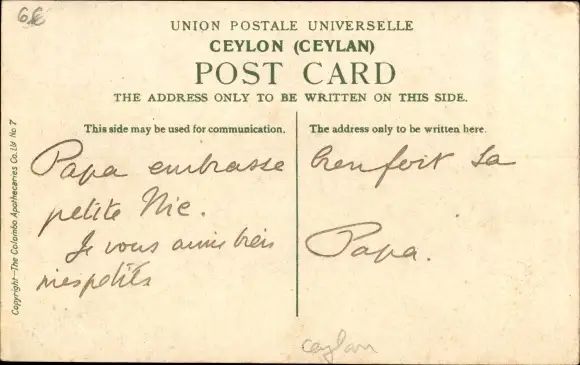 6€
UNION POSTALE UNIVERSELLE
CEYLON (CEYLAN)
POST CARD
THE ADDRESS ONLY TO BE WRITTEN ON THIS SIDE.
This side may be used for communication.
Papa embrasse
petite Nie.
Je vous aime bien
mes petits
The address only to be written here.
bien fort sa
Papa.
Copyright—The Colombo Apothecaries Co. Ld No. 7
ceylan